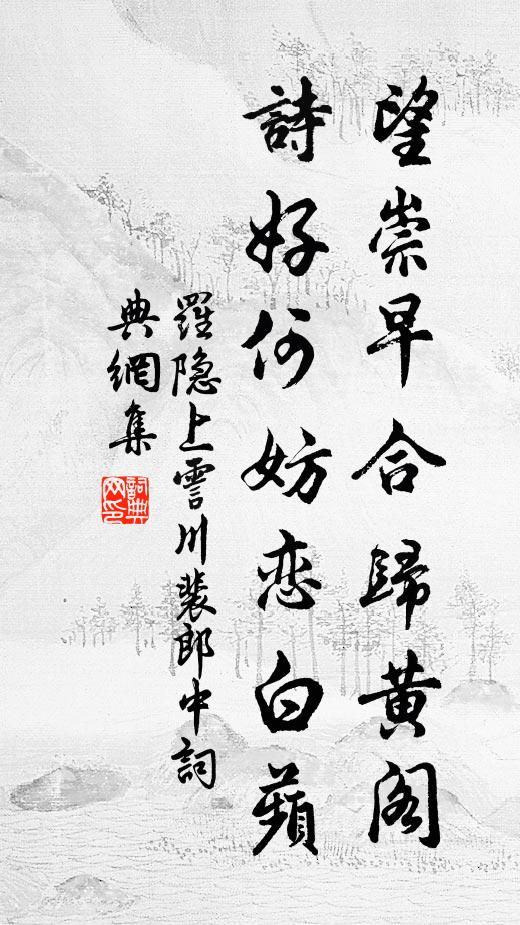 望崇早合歸黃阁
詩好何妨恋白蘋
羅隐上霅川裴郎中詞
典網集
詞典网印